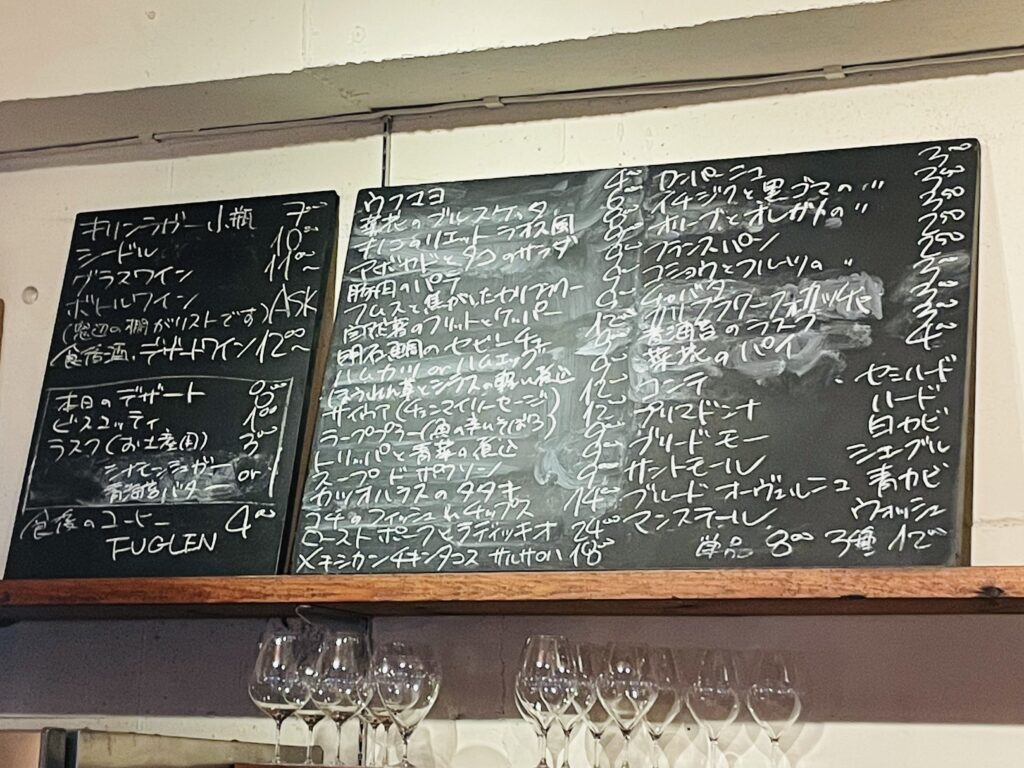 キリンラガー小瓶 700
シードル 1000
グラスワイン 1100~
ボトルワイン ASK
(窓辺の棚がリストです)
食後酒、デザートワイン 1200~
本日のデザート 800
ビスコッティ 100
ラスク(お土産用) 300
シナモンシュガー or
青海苔バター
食後のコーヒー 400
FUGLEN
ウフマヨ 400
菜花のブルスケッタ 600
きのこのリエット ラオス風 800
アボカドとタコのサラダ 900
豚肉のパテ 900
フムスと焦がしたカリフラワー
自然薯のフリットとケッパー 900
明石鯛のセビーチェ 1200
ハムカツ or ハムエッグ
ほうれん草とシラスの軽い煮込 900
サイウア(チェンマイソーセージ) 1200
ラーププラー(魚の辛いそぼろ) 1200
トリッパと青菜の煮込 900
スープ ド ポワソン 900
カツオハラスのタタキ
コチのフィッシュ&チップス 1400
ローストポークとラディッキオ 2400
メキシカンチキンタコス サルサロハ 1800
カンパーニュ 300
イチジクと黒ゴマの〃 350
オリーブとオレガノの〃 350
フランスパン 250
コショウとフルーツの〃 350
チャバタ 300
カリフラワーフォカッチャ 300
青海苔のラスク 300
菜花のパイ 400
コンテ セミハード
プリマドンナ ハード
ブリードモー 白カビ
サントモール シェーブル
ブルードオーヴェルニュ 青カビ
マンステール ウォッシュ
単品 800 3種 1200